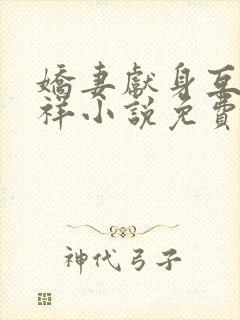 嬌妻獻身互
祥小說免費
神代弓子